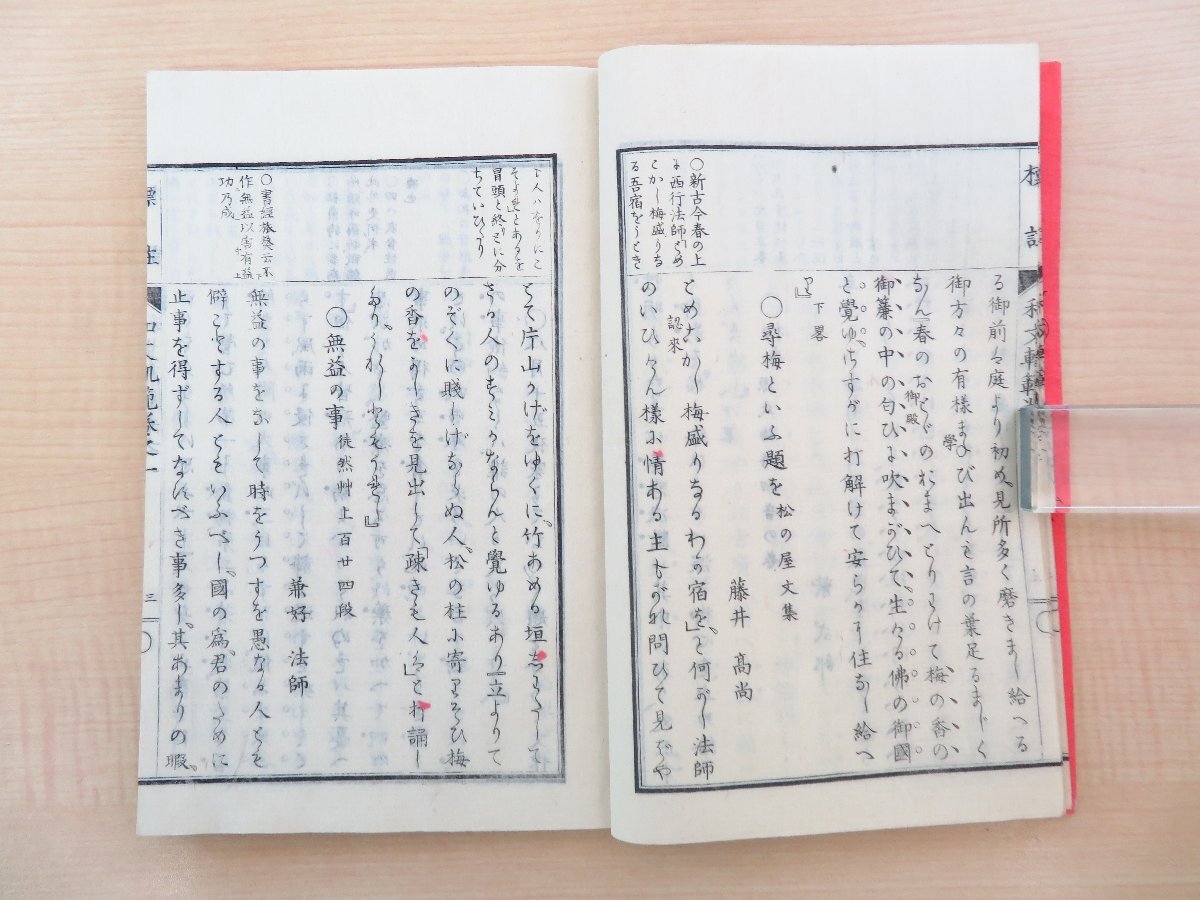 ○新古今春の上
に西行法師とめ
こかし梅盛りなる
る吾宿をうとき
る御前は庭より初め、見所多く磨きまし給へる
御方々の有様まねび出んも言の葉足るまじく
學
なん『春のおとゞのおまへとりわけて梅の香の
御殿
御簾の中の匂ひに吹まがひて、生ける佛の御國
と覺ゆ、さすがに打解けて安らかに住なし給へ
り』
下畧
○尋梅といふ題を 松の屋文集
藤井 高尚
とめこかし梅盛りなるわが宿を」と何がし法師
認來
のいひけん様に情ある主もがれ問ひて見ばや
も人ハをりにこ
そよれ」とあるを
冒頭と終りに分
ちていひたり
とて片山かげをゆくに、竹あめる垣しわたして
さる人のすみかならんと覺ゆるあり『立よりて
のぞくに賤しげならぬ人、松の柱に寄りそひ梅
の香をかしきを見出して「疎きも人は」と打誦し
たり、うれしともうれし』
○無益の事 徒然艸上百廿四段
兼好法師
○書經旅獒云不
作無益以害有益
功乃成
無益の事をなして時をうつすを愚なる人とも
僻ことする人ともいふべし、國の爲、君のために
止事を得ずしてなすべき事多し、其あまりの暇、
標註
三